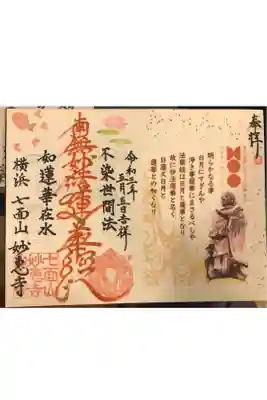 奉拝
明らかなる事
日月にすぎんや
浄き事蓮華にまさるべしや
法華経は日月と蓮華となり
故に妙法蓮華経と名く
日蓮又日月と
蓮華との如くなり
令和二年
五月五日吉祥
不染世間法
南無妙法蓮華経
如蓮華在水
横浜 七面山 妙恵寺